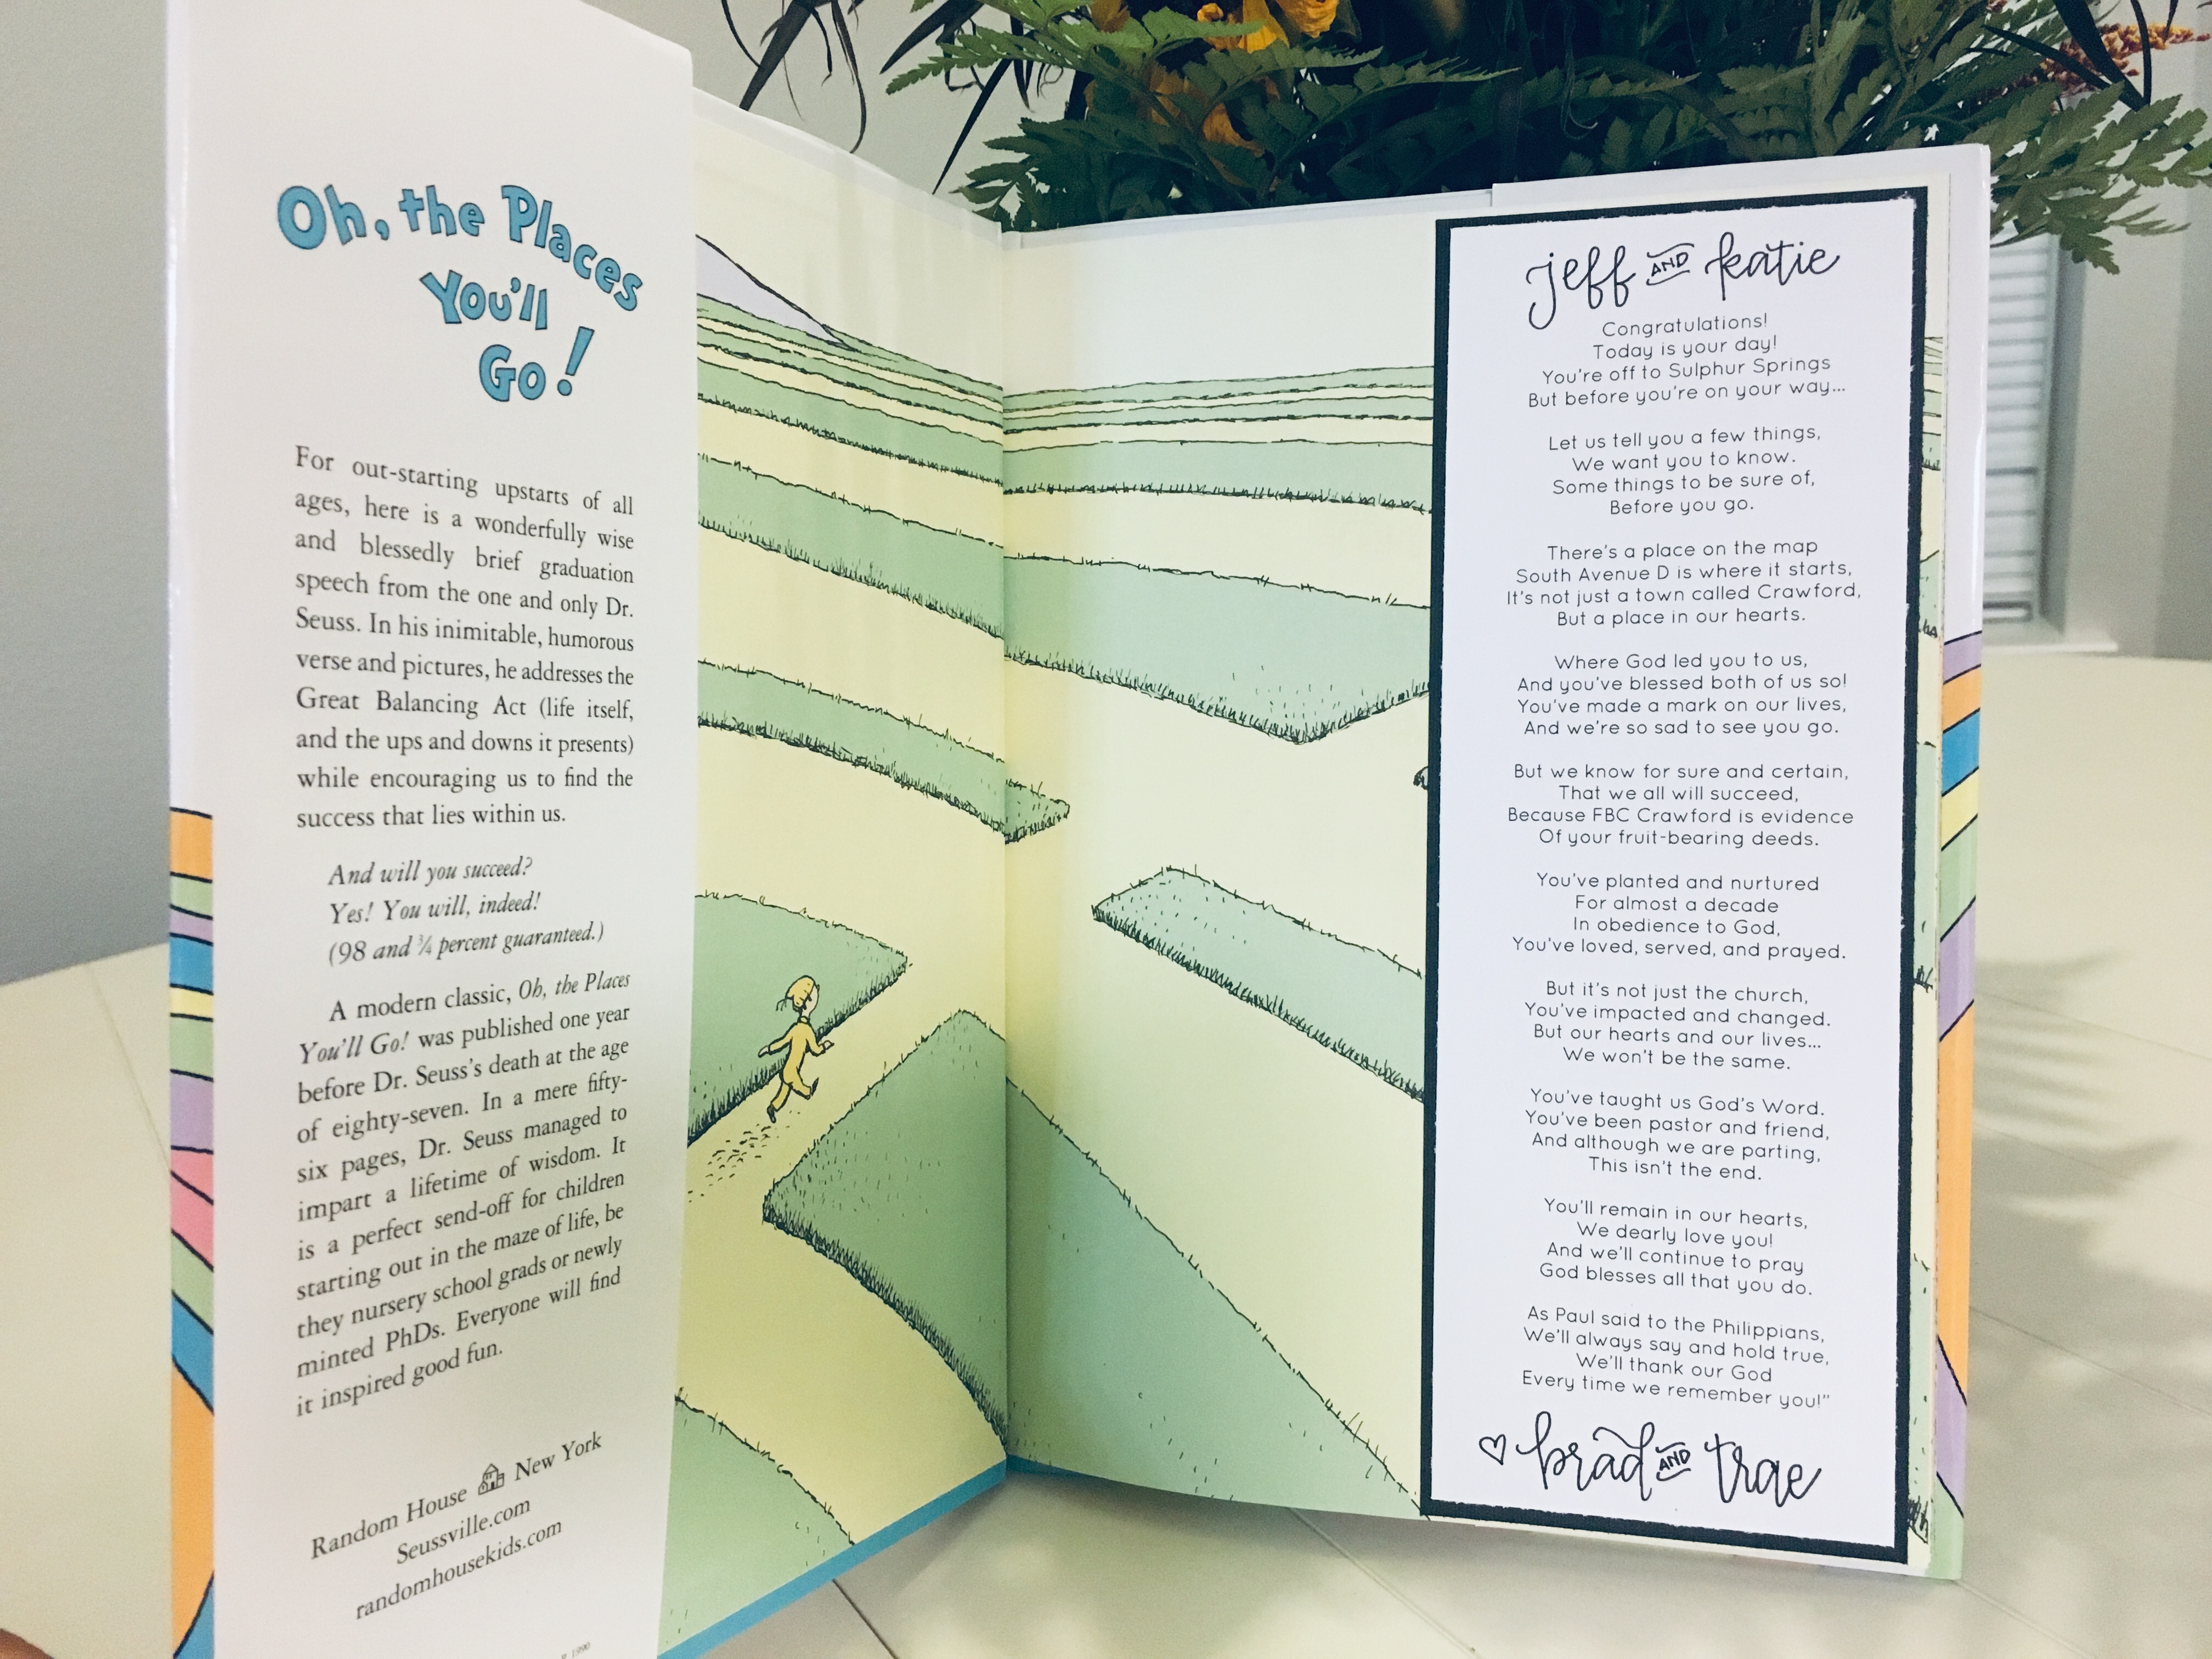 Oh, the Places
You'll
Go!
For out-starting upstarts of all
ages, here is a wonderfully wise
and blessedly brief graduation
speech from the one and only Dr.
Seuss. In his inimitable, humorous
verse and pictures, he addresses the
Great Balancing Act (life itself,
and the ups and downs it presents)
while encouraging us to find the
success that lies within us.
And will you succeed?
Yes! You will, indeed!
(98 and ¾ percent guaranteed.)
A modern classic, Oh, the Places
You'll Go! was published one year
before Dr. Seuss's death at the age
of eighty-seven. In a mere fifty-
six pages, Dr. Seuss managed to
impart a lifetime of wisdom. It
is a perfect send-off for children
starting out in the maze of life, be
they nursery school grads or newly
minted PhDs. Everyone will find
it inspired good fun.
Random House New York
Seussville.com
randomhousekids.com
1990
jeff AND katie
Congratulations!
Today is your day!
You're off to Sulphur Springs
But before you're on your way...
Let us tell you a few things,
We want you to know.
Some things to be sure of,
Before you go.
There's a place on the map
South Avenue D is where it starts,
It's not just a town called Crawford,
But a place in our hearts.
Where God led you to us,
And you've blessed both of us so!
You've made a mark on our lives,
And we're so sad to see you go.
But we know for sure and certain,
That we all will succeed,
Because FBC Crawford is evidence
Of your fruit-bearing deeds.
You've planted and nurtured
For almost a decade
In obedience to God,
You've loved, served, and prayed.
But it's not just the church,
You've impacted and changed.
But our hearts and our lives...
We won't be the same.
You've taught us God's Word.
You've been pastor and friend,
And although we are parting,
This isn't the end.
You'll remain in our hearts,
We dearly love you!
And we'll continue to pray
God blesses all that you do.
As Paul said to the Philippians,
We'll always say and hold true,
We'll thank our God
Every time we remember you!"
brad AND trae